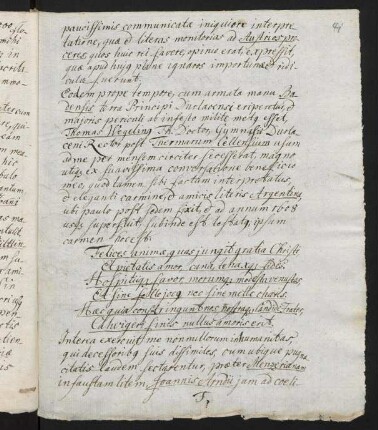 paucissimis communicata iniquiore interpre
tatione, qua d literas monitorias ad Austriae pro
ceres, quos huic rei favere, opinio erat, expressit,
quae apud hujus plane ignaros importunae ridi
cula fuerunt.
Eodem prope tempore, cum armata manu Ba
densis terra Principi Durlacensi eriperetur, et
majoris periculi ab infesto milite metus esset,
Thomas Wegelin Th. Doctor, Gymnasii Durla
censis Rector post Thermarum Cellensium usum
ad me per mensem circiter secesserat, magno
utique ex suavissima conversatione beneficio
meo, quod tamen sibi factum interpretatus,
et eleganti carmine et amicis literis Argentina,
ubi paulo post sedem fixit, et ad annum 1608
usque superfuit, subinde est testatus, ipsum
carmen hoc est:
Felices animae quas jungit gratia Christi
Et pietatis amor, cana tenaxque fides.
Has simul favor morum, modestia venustas
Et sine felle jocus, nec sine melle charis.
Haec quia constringunt nos
Cahriger sint nullus amoris erit.
Interea exercuit me nonnullorum inhumanitas,
qui decessoribus suis dissimiles, cum ubique
citatis laudem sectarentur, praeter Menzerianam
infaustam litem, Joannis Arndii jam ad coeli